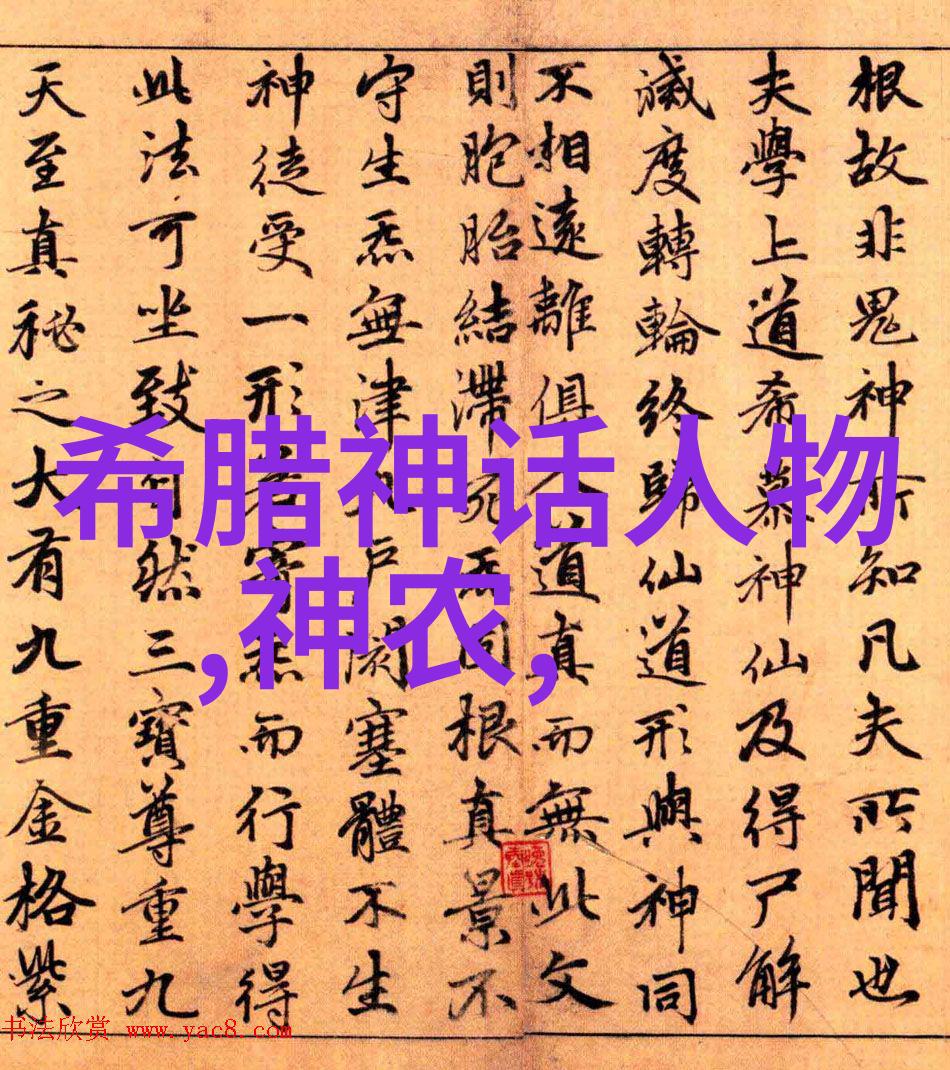 根故非鬼神所知凡夫所聞也
夫學上道希慕神仙及得尸解
滅度轉輪終歸仙道形與神同
不相遠離俱入道真而無此文
則胞胎結滯死炁固根真景不
守生炁無津
戶閡塞體不生
神徒受一形若寄炁而行學得
此法可坐致自然三寶尊重九
天至真秘之大有九重金格紫
希腊神话人物
,神农,
书法欣赏 www.yac8.com